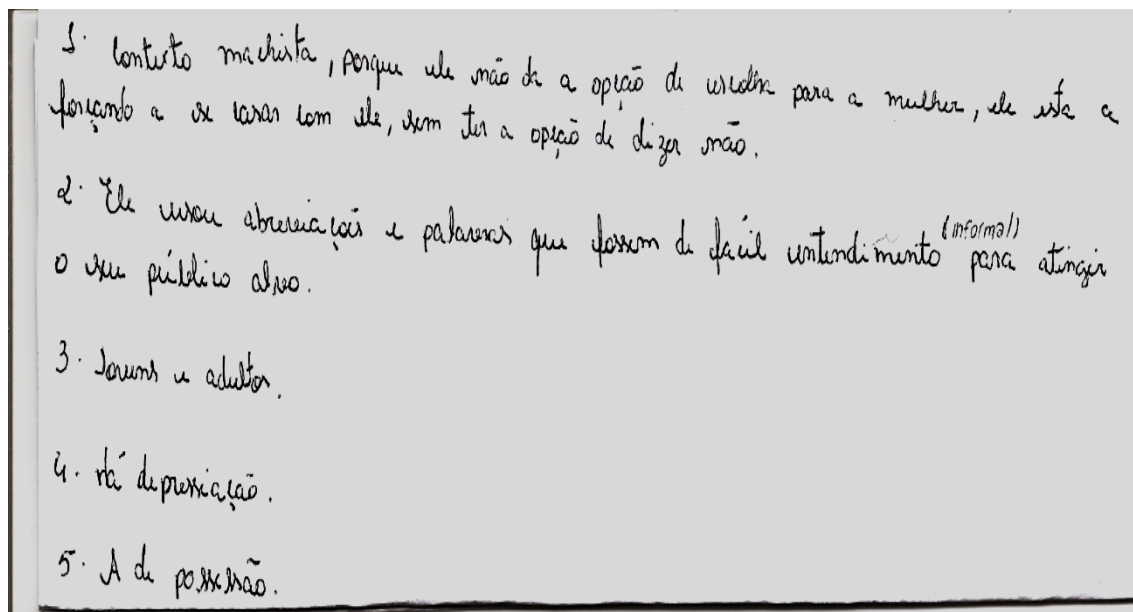 1. Contexto machista, porque ele não da a opção de escolha para a mulher, ele esta a
forçando a se casar com ele, sem ter a opção de dizer não.
2. Ele usou abreviações e palavras que fossem de fácil entendimento (informal) para atingir
o seu público alvo.
3. Jovens e adultos.
4. Há depressiação.
5. A de possessão.